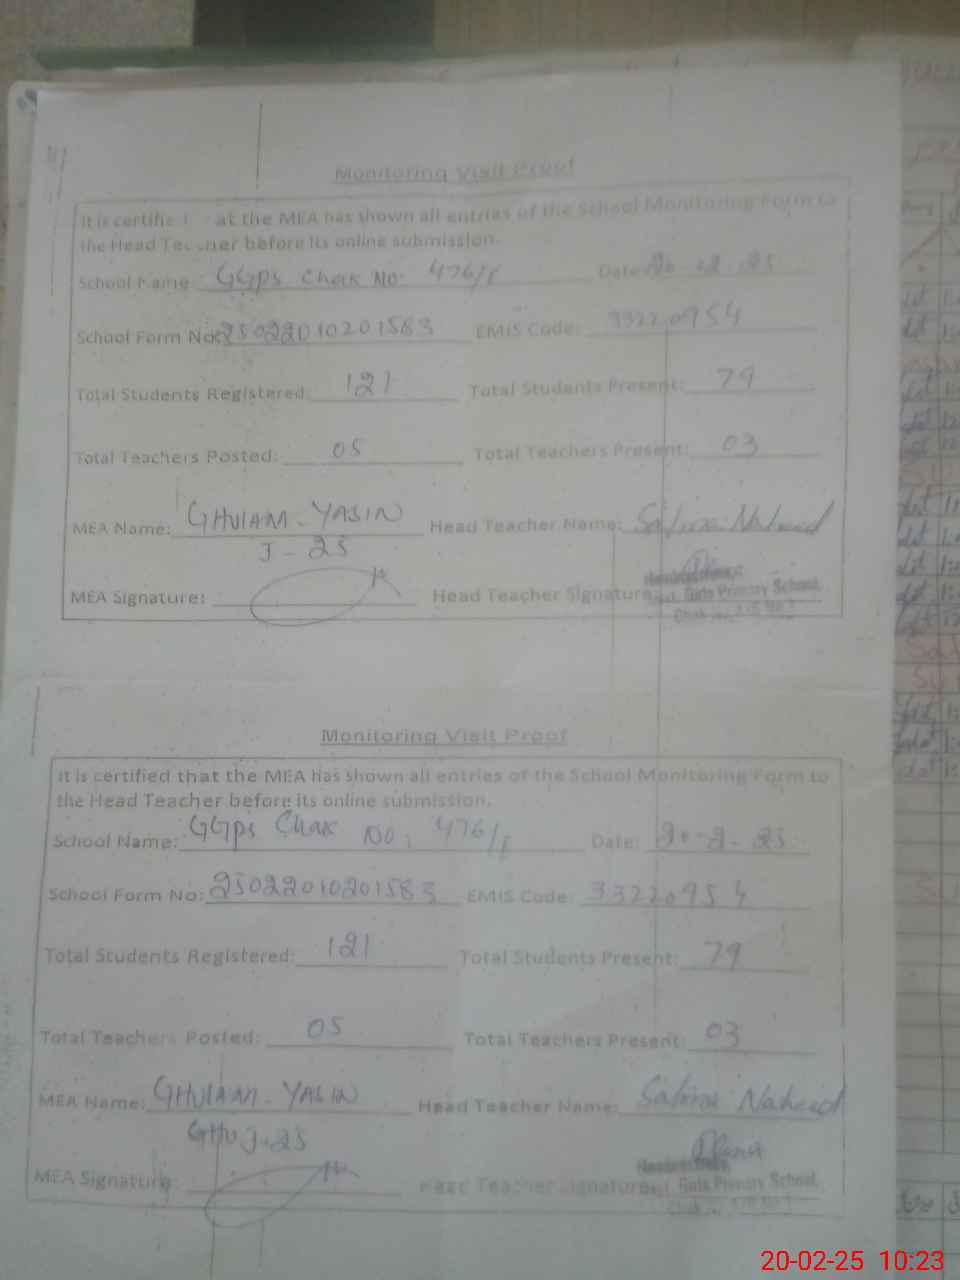 Monitoring Visit Proof
It is certified at the MEA has shown all entries of the School Monitoring Form to
the Head Teacher before its online submission.
School Name GGPS Chak No: 476/ Date: 20 02 25
School Form No: 25022010201583 EMIS Code: 33220954
Total Students Registered: 121 Total Students Present: 79
Total Teachers Posted: 05 Total Teachers Present: 03
MEA Name: GHULAM-YASIN Head Teacher Name: Salima Naheed
J-25
MEA Signature: Head Teacher Signature:
Girls Primary School,
Monitoring Visit Proof
It is certified that the MEA has shown all entries of the School Monitoring Form to
the Head Teacher before its online submission.
School Name: GGPS Chak No: 476/ Date: 20-2-25
School Form No: 25022010201583 EMIS Code: 33220954
Total Students Registered: 121 Total Students Present: 79
Total Teachers Posted: 05 Total Teachers Present: 03
MEA Name: GHULAM-YASIN Head Teacher Name: Salima Naheed
GHU J-25
MEA Signature: Head Teacher Signature:
Girls Primary School,
20-02-25 10:23